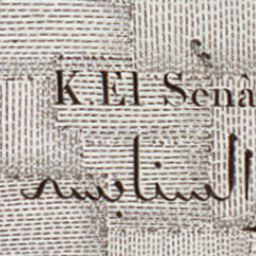 K.El Senâ
السنابسه